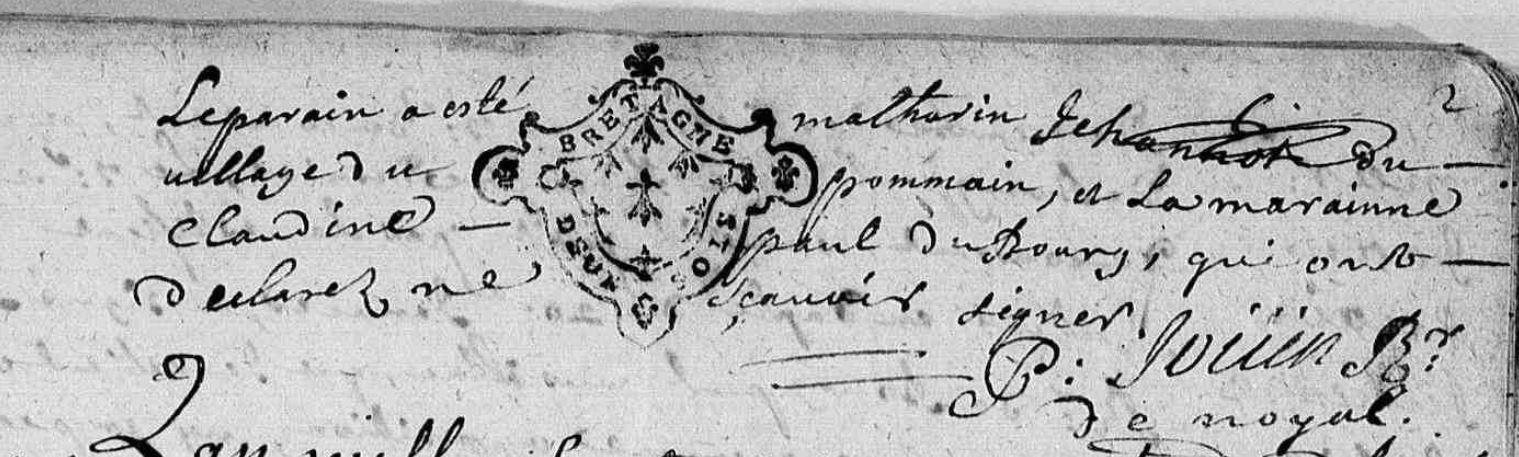 2
Leparain a esté mathurin Jehannot du —
village du pommain, et La marainne
Claudine — paul du Bourg, qui ont —
declarez ne sçavoir signer.
P: Joüin Rr
de noyal.
BRETAGNE
DEUX SOLS
L'an mill